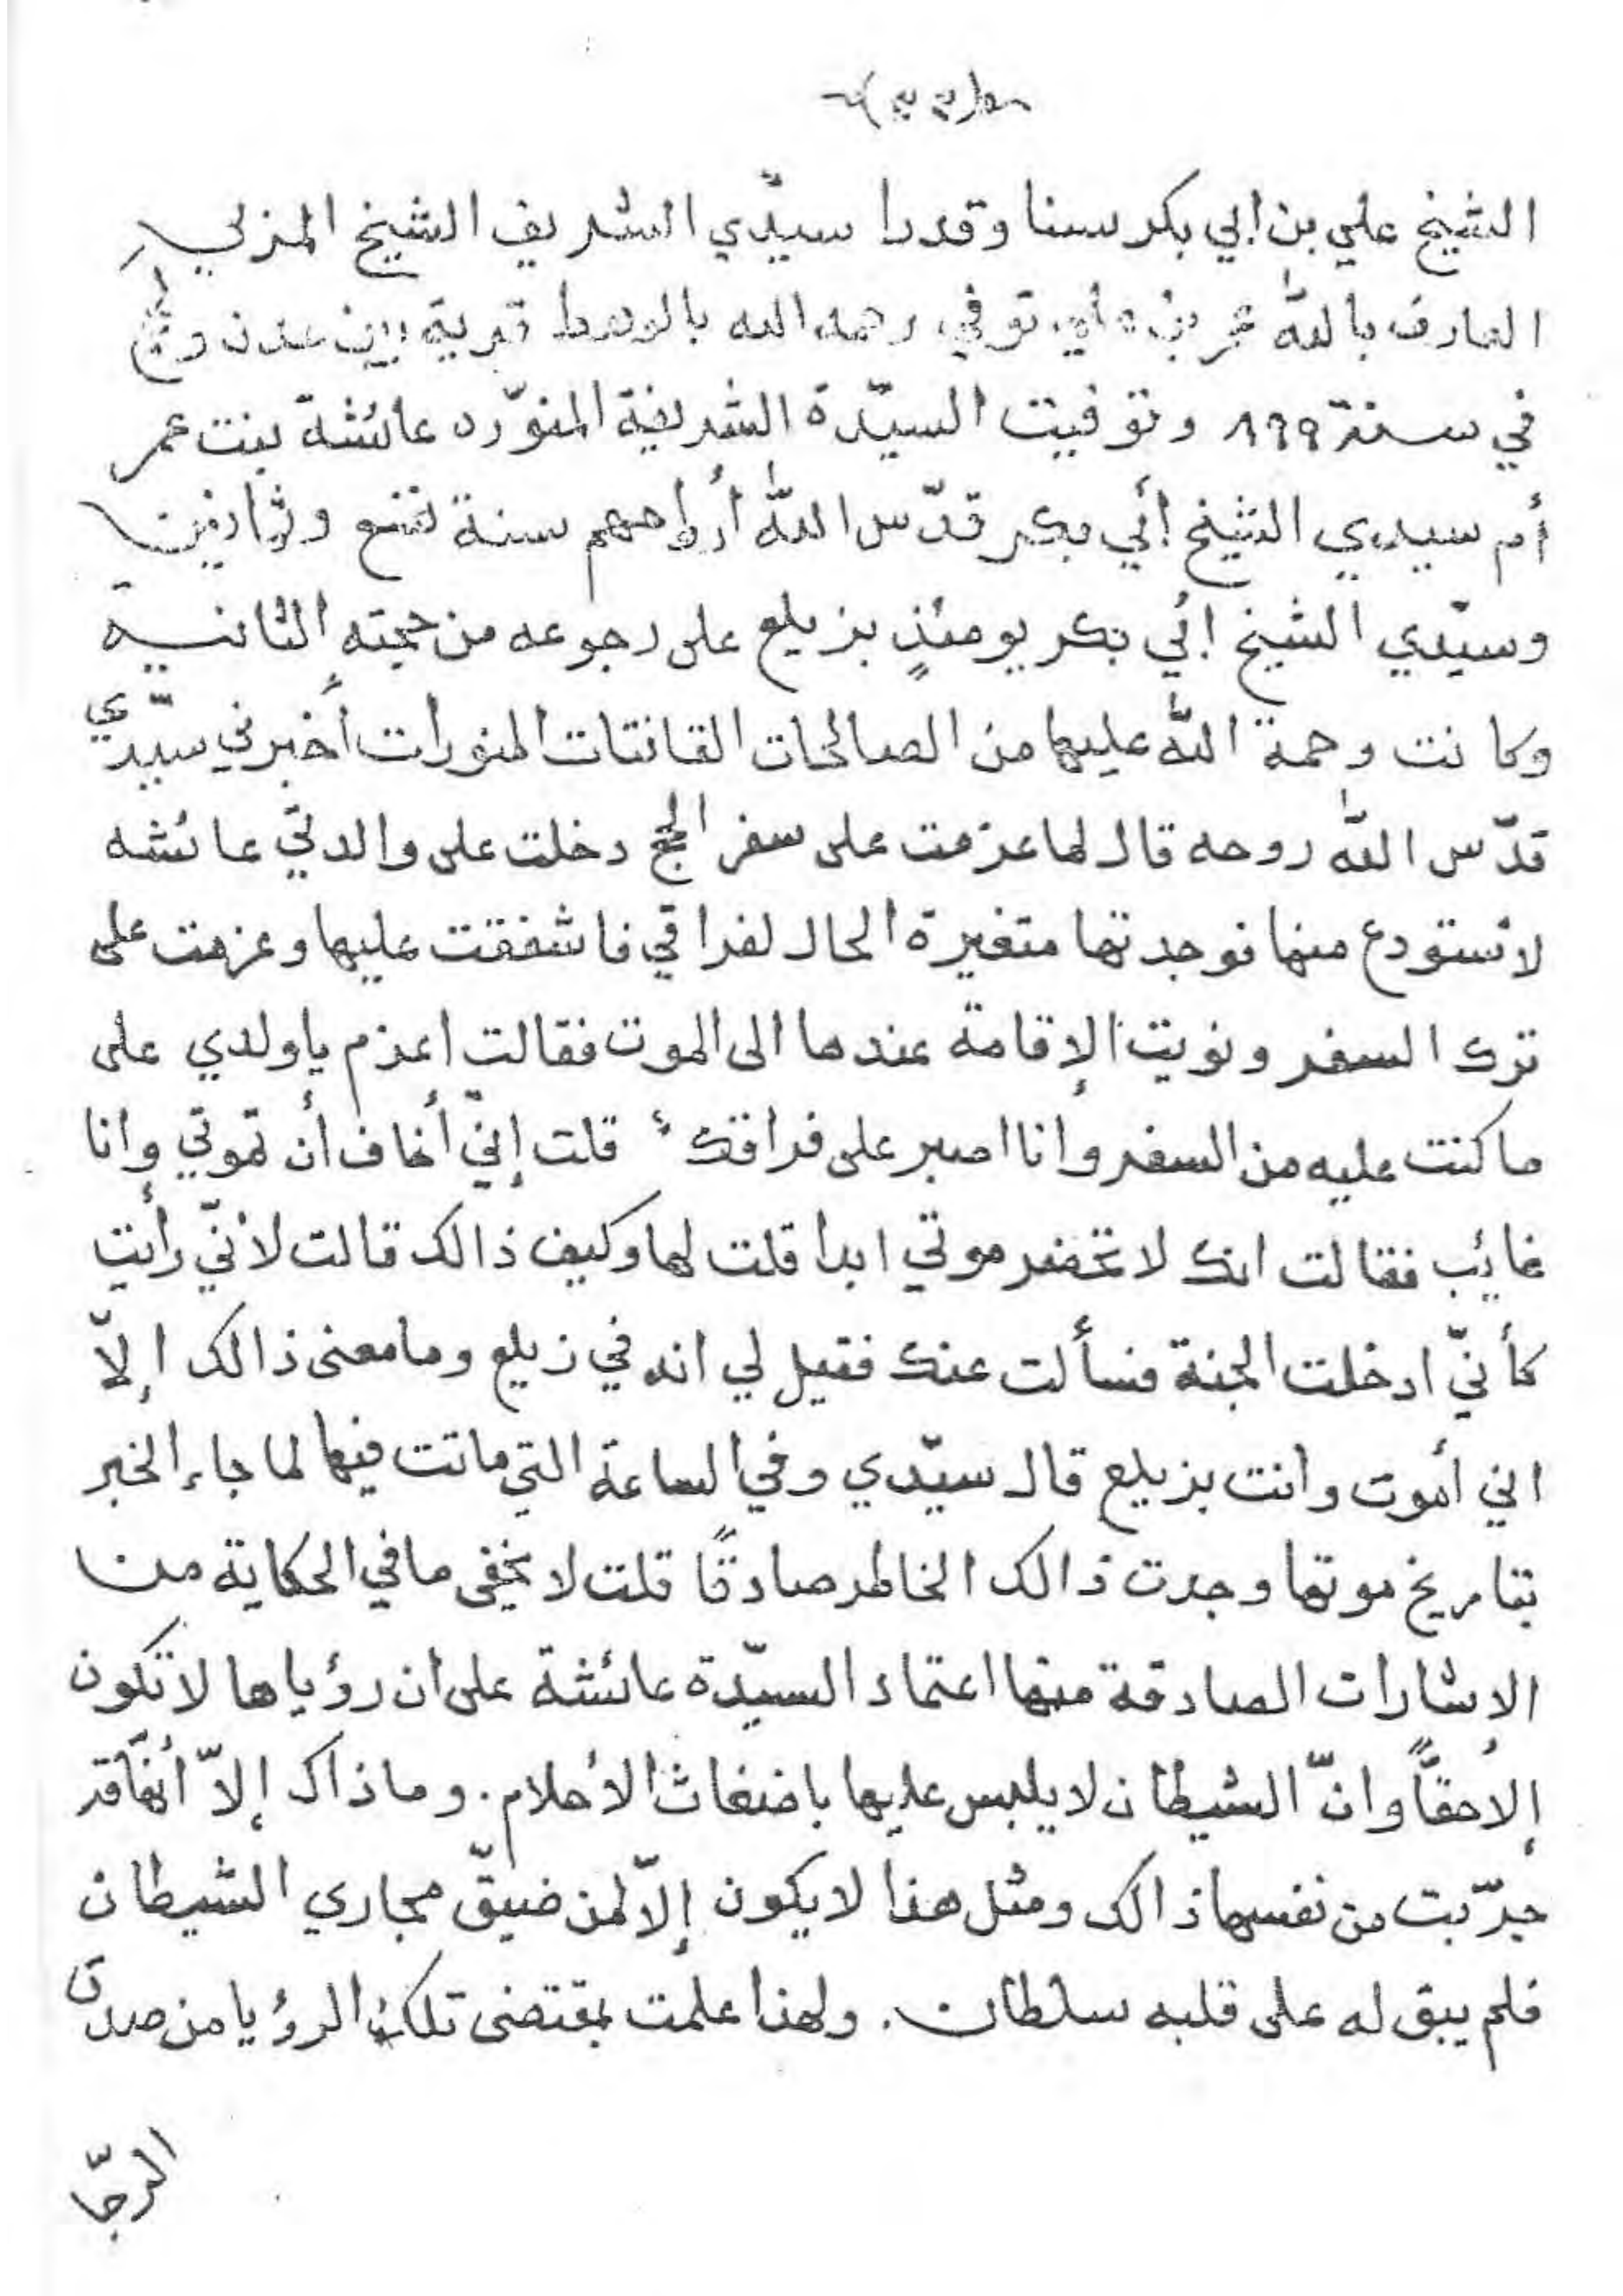 الشيخ علي بن ابي بكر سنا وقدرا سيّدي الشريف الشيخ المنزلي
العارف بالله عمر بن علي توفي رحمه الله بالوهط قرية بين عدن و
في سنة ٨٩٩ وتوفيت السيّدة الشريفة المنوّره عائشة بنت عمر
أم سيدي الشيخ أبي بكر قدّس الله أرواحهم سنة تسع وثمانين
وسيّدي الشيخ ابي بكر يومئذٍ بزيلع على رجوعه من حجته الثانية
وكانت رحمة الله عليها من الصالحات القانتات المنورات أخبرني سيّدي
قدّس الله روحه قال لما عزمت على سفر الحج دخلت على والدتي عائشه
لأستودع منها فوجدتها متغيرة الحال لفراقي فاشفقت عليها وعزمت على
ترك السفر ونويت الإقامة عندها الى الموت فقالت اعزم ياولدي على
ماكنت عليه من السفر وانا اصبر على فراقك قلت إنّي أخاف أن تموتي وانا
غائب فقالت انك لا تحضر موتي ابدا قلت لها وكيف ذالك قالت لأنّي رأيت
كأنّي ادخلت الجنة فسألت عنك فقيل لي انه في زيلع ومامعنى ذالك إلاّ
اني أموت وانت بزيلع قال سيّدي وفي الساعة التي ماتت فيها لما جاء الخبر
بتاريخ موتها وجدت ذالك الخاطر صادقًا قلت لا يخفى مافي الحكاية من
الاشارات الصادقة منها اعتماد السيّدة عائشة على ان رؤياها لاتكون
إلاحقًّا وانّ الشيطان لايلبس عليها باضغاث الأحلام. وماذاك إلاّ أنهّا قد
جرّبت من نفسها ذالك ومثل هذا لايكون إلاّ لمن ضيّق مجاري الشيطان
فلم يبق له على قلبه سلطان. ولهذا علمت بمقتضى تلك الرؤيا من صدق
الرجّا